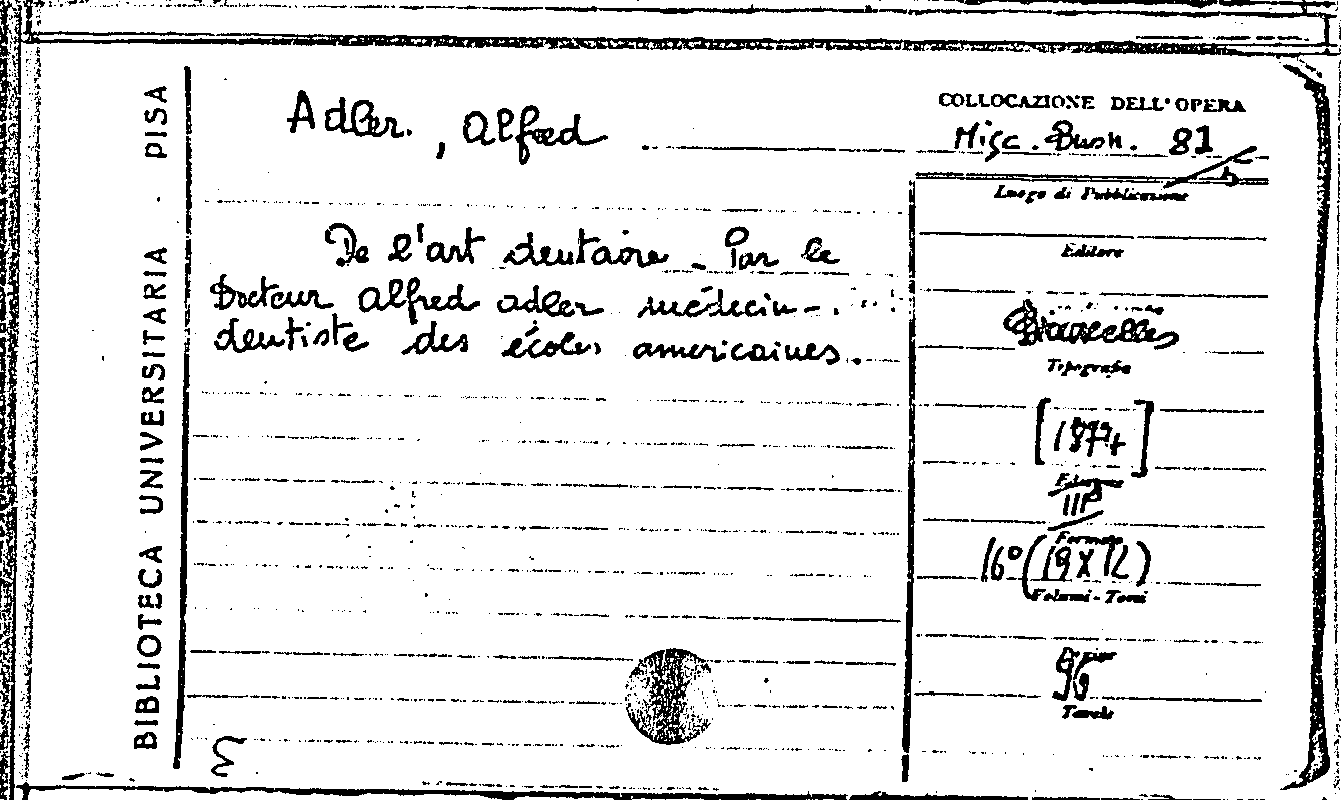 BIBLIOTECA UNIVERSITARIA - PISA
Adler, Alfred
De l'art dentaire - Par le
Docteur Alfred Adler médecin-
dentiste des écoles americaines.
COLLOCAZIONE DELL'OPERA
Misc. Bush. 81/5
Luogo di Pubblicazione
Editore
Bruxelles
Tipografia
[1874]
Edizione
III
Formato
16° (19 X 12)
Volumi - Tomi
96
Tavole